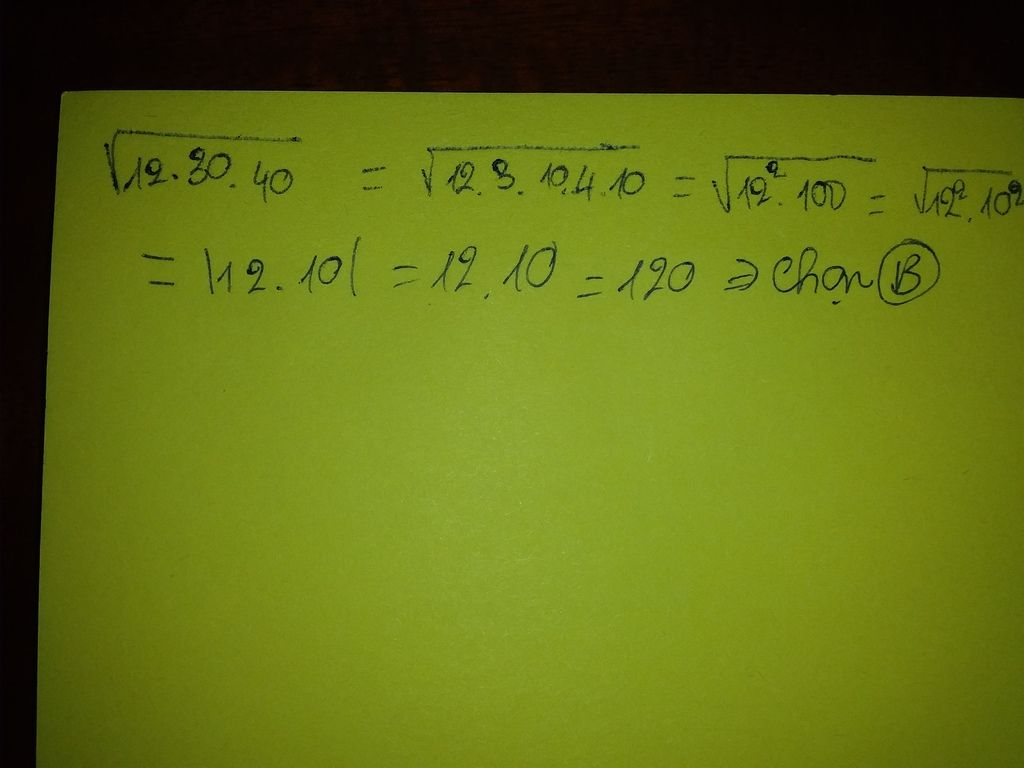 √12.30.40 = √12.3.10.4.10 = √12².100 = √12².10²
= |12.10| = 12.10 = 120 ⇒ Chọn B